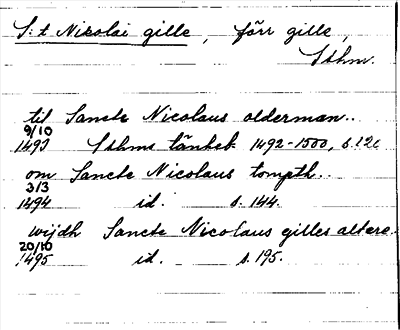 S:t Nikolai gille, förr gille,
Sthm.
til Sancte Nicolaus alderman..
9/10
1493 Sthms tänkeb. 1492-1500, s.126
om Sancte Nicolaus tompth..
3/3
1494 id. s. 144.
wijdh Sancte Nicolaus gilles altare.
20/10
1495 id. s. 195.